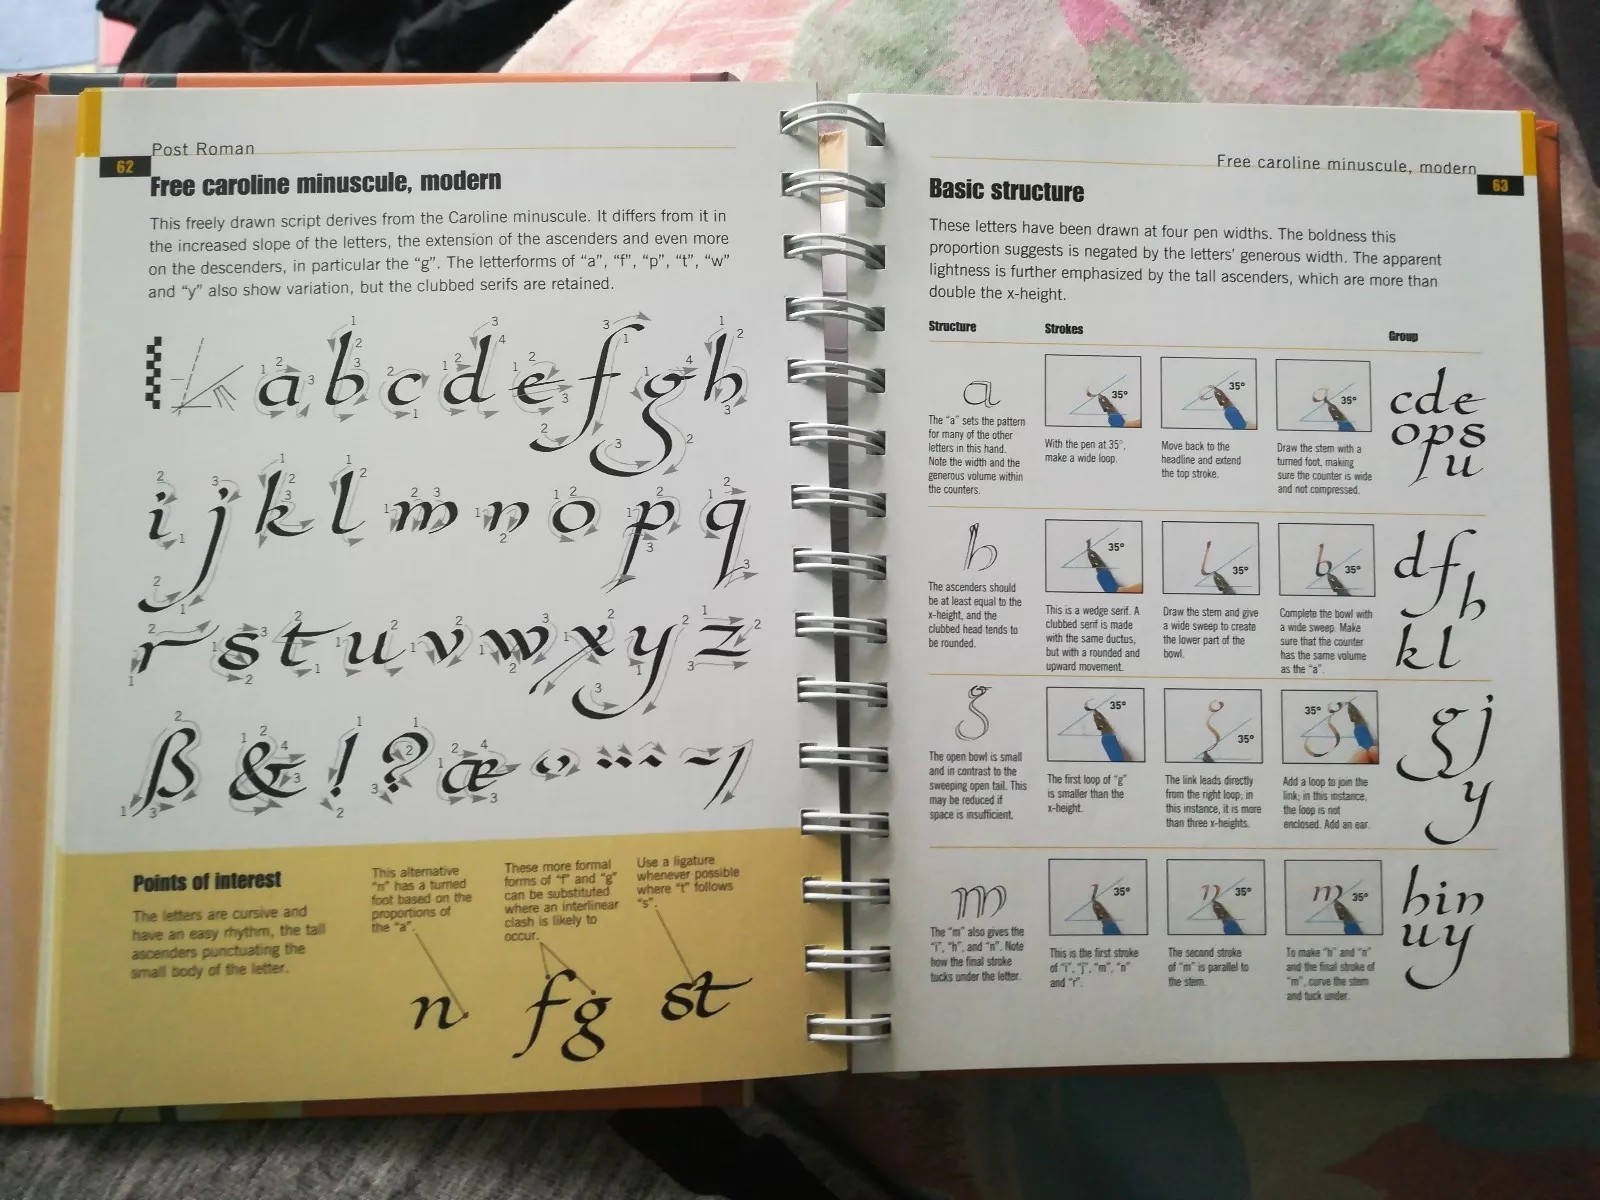 62
Post Roman
Free caroline minuscule, modern
This freely drawn script derives from the Caroline minuscule. It differs from it in
the increased slope of the letters, the extension of the ascenders and even more
on the descenders, in particular the “g”. The letterforms of “a”, “f”, “p”, “t”, “w”
and “y” also show variation, but the clubbed serifs are retained.
a b c d e f g h
i j k l m n o p q
r s t u v w x y z
ß & ! ? æ
Points of interest
The letters are cursive and
have an easy rhythm, the tall
ascenders punctuating the
small body of the letter.
This alternative
“n” has a turned
foot based on the
proportions of
the “a”.
These more formal
forms of “f” and “g”
can be substituted
where an interlinear
clash is likely to
occur.
Use a ligature
whenever possible
where “t” follows
“s”.
n fg st
Free caroline minuscule, modern
63
Basic structure
These letters have been drawn at four pen widths. The boldness this
proportion suggests is negated by the letters’ generous width. The apparent
lightness is further emphasized by the tall ascenders, which are more than
double the x-height.
Structure Strokes Group
a
The “a” sets the pattern
for many of the other
letters in this hand.
Note the width and the
generous volume within
the counters.
35°
With the pen at 35°,
make a wide loop.
35°
Move back to the
headline and extend
the top stroke.
35°
Draw the stem with a
turned foot, making
sure the counter is wide
and not compressed.
cde
ops
u
h
The ascenders should
be at least equal to the
x-height, and the
clubbed head tends to
be rounded.
35°
This is a wedge serif. A
clubbed serif is made
with the same ductus,
but with a rounded and
upward movement.
35°
Draw the stem and give
a wide sweep to create
the lower part of the
bowl.
35°
Complete the bowl with
a wide sweep. Make
sure that the counter
has the same volume
as the “a”.
dfh
kl
g
The open bowl is small
and in contrast to the
sweeping open tail. This
may be reduced if
space is insufficient.
35°
The first loop of “g”
is smaller than the
x-height.
35°
The link leads directly
from the right loop; in
this instance, it is more
than three x-heights.
35°
Add a loop to join the
link; in this instance,
the loop is not
enclosed. Add an ear.
gj
y
m
The “m” also gives the
“i”, “h”, and “n”. Note
how the final stroke
tucks under the letter.
35°
This is the first stroke
of “i”, “j”, “m”, “n”
and “r”.
35°
The second stroke
of “m” is parallel to
the stem.
35°
To make “h” and “n”
and the final stroke of
“m”, curve the stem
and tuck under.
hin
uy